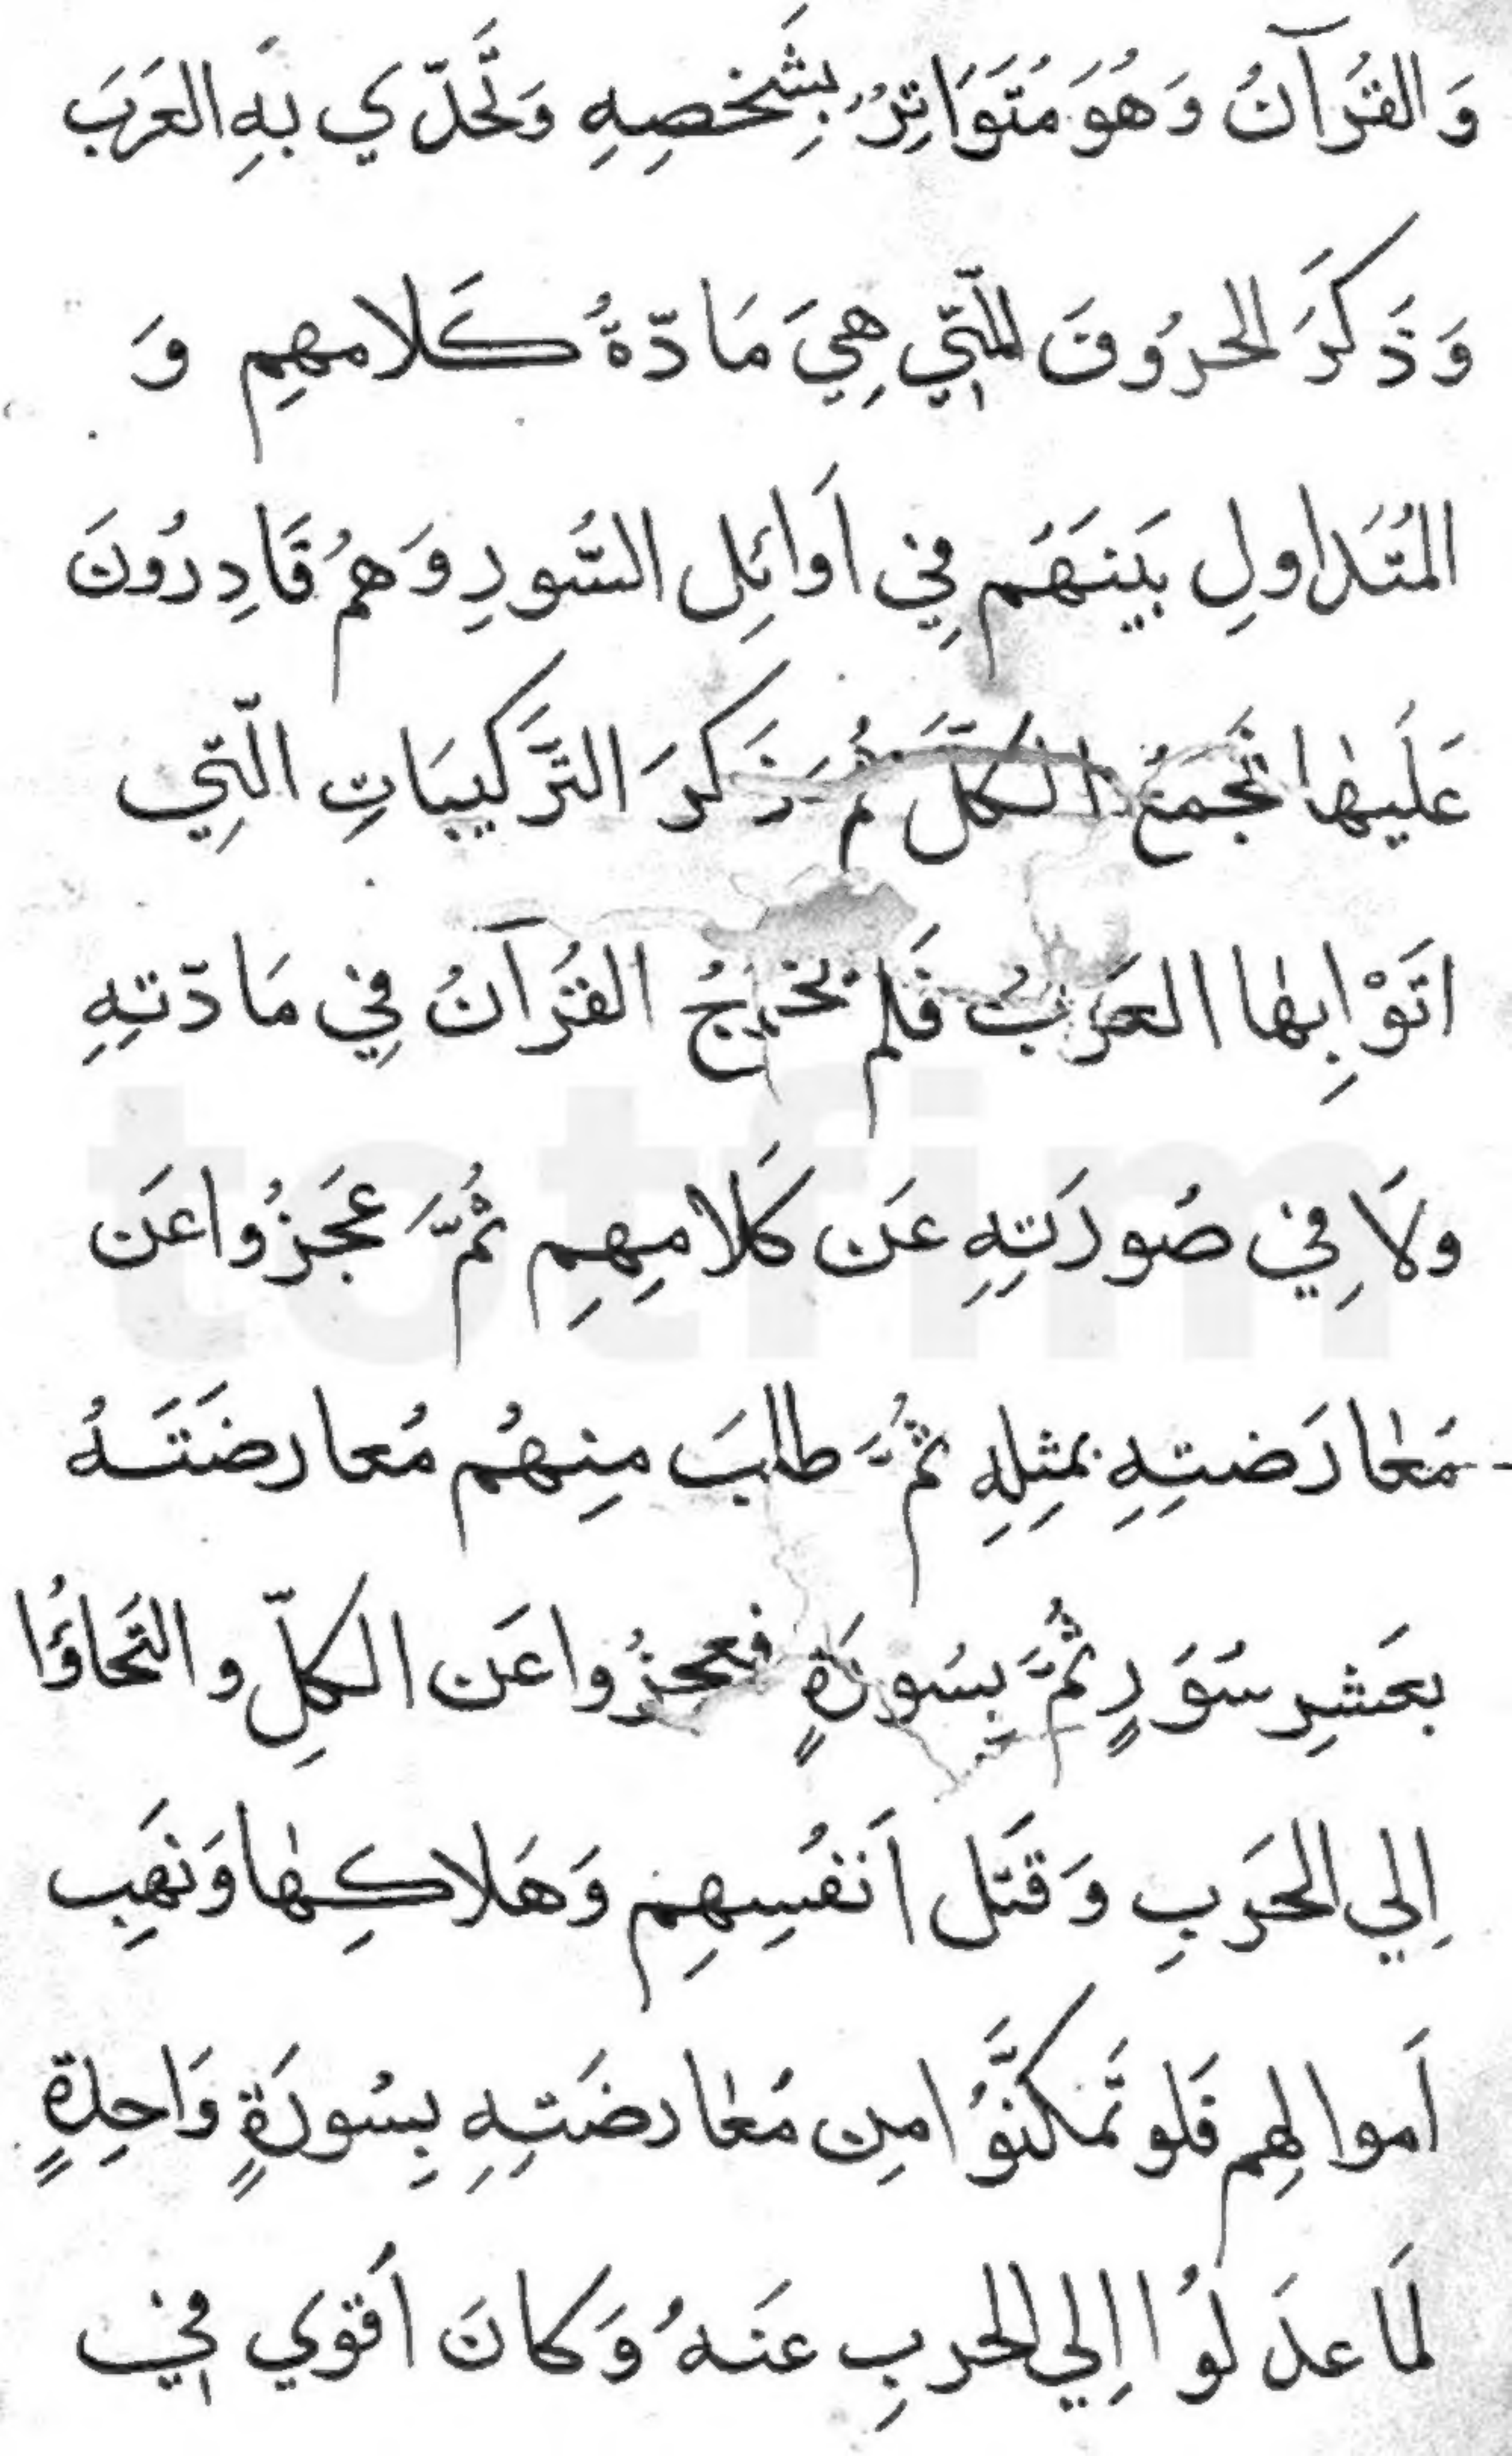 وَالقُرآنُ وَهُوَ مُتَوَاتِرٌ بِشَخصِهِ وَتَحَدّي بِهِ العَرَبَ
وَذَكَرَ الحرُوفَ الّتي هِيَ مَادّةُ كَلامهِم وَ
المُتَداولِ بَينَهُم فِي اَوائِلِ السُّورِ وَهمُ قَادِرُونَ
عَلَيها تجَمَعُ الكلَّ ثمُ ذَكرَ التَّركيبَاتِ الّتِي
اتَوْا بِها العَرَبُ فَلم يخرجُ القُرآنُ فِي مَادّتِهِ
ولَا فِي صُورَتِهِ عَن كَلامِهِم ثمُّ عَجَزُوا عَن
مَعارَضتِهِ بمثِلِهِ ثمُّ طالبَ مِنهُم مُعارضَتَهُ
بعَشرِ سُوَرٍ ثمُّ بِسُورَةٍ فعجزُوا عَن الكلِّ والتَحاؤُا
اِلي الحَربِ وَقَتل اَنفُسِهِم وَهَلاكِها وَنَهبِ
اَموالهِم فَلو تَمكنَّوُا مِن مُعارضَتِهِ بِسُورَةٍ وَاحِدةٍ
لمَا عدَلوُا اِلي الحربِ عنَهُ وَكانَ اَقوي في
totfim